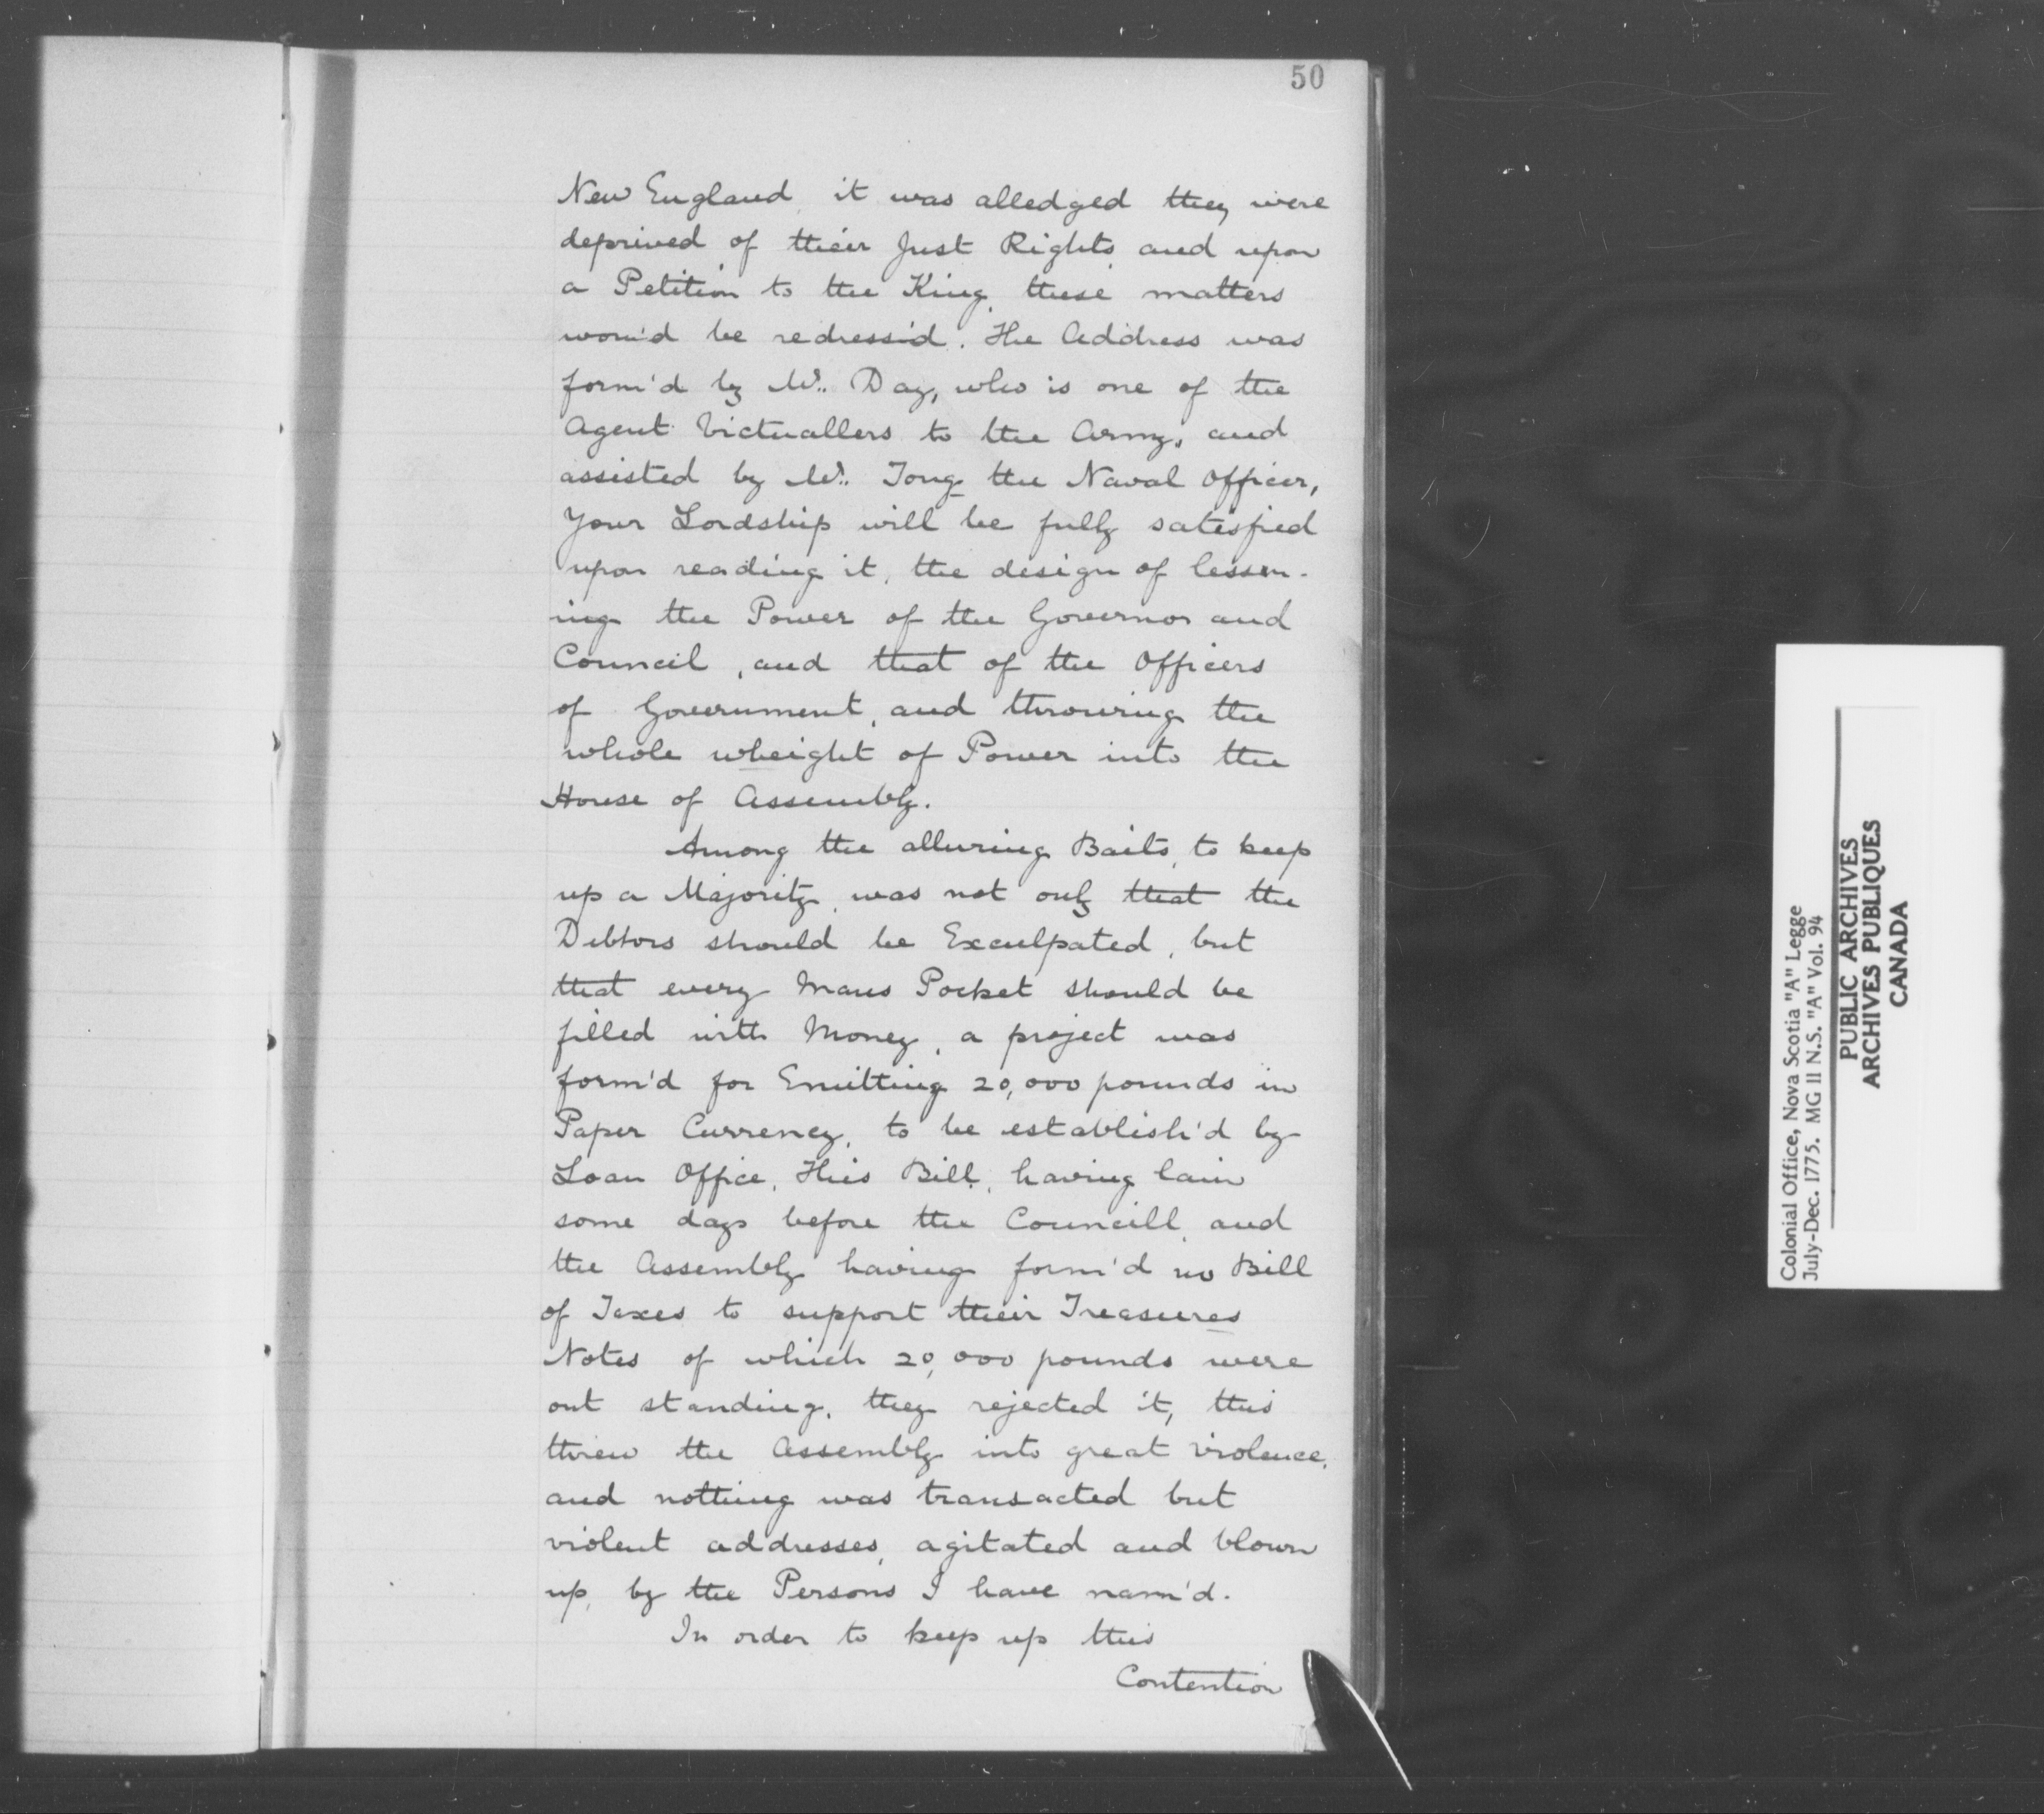 50
New England, it was alledged they were
deprived of their Just Rights, and upon
a Petition to the King, these matters
wou'd be redress'd. The Address was
form'd by Mr. Day, who is one of the
Agent Victuallers to the Army, and
assisted by Mr. Tong the Naval Officer,
Your Lordship will be fully satisfied
upon reading it, the design of lessen-
ing the Power of the Governor and
Council, and that of the Officers
of Government, and throwing the
whole wheight of Power into the
House of Assembly.
Among the alluring Baits, to keep
up a Majority, was not only that the
Debtors should be Exculpated, but
that every Mans Pocket should be
filled with Money, a project was
form'd for Emitting 20,000 pounds in
Paper Currency, to be establish'd by
Loan Office, This Bill, having lain
some days before the Councill, and
the Assembly having form'd no Bill
of Taxes to support their Treasures
Notes of which 20,000 pounds were
out standing, they rejected it, this
threw the Assembly into great violence,
and nothing was transacted but
violent addresses, agitated and blown
up, by the Persons I have nam'd.
In order to keep up this
Contention
Colonial Office, Nova Scotia "A" Legge
July-Dec. 1775. MG 11 N.S. "A" Vol. 94
PUBLIC ARCHIVES
ARCHIVES PUBLIQUES
CANADA